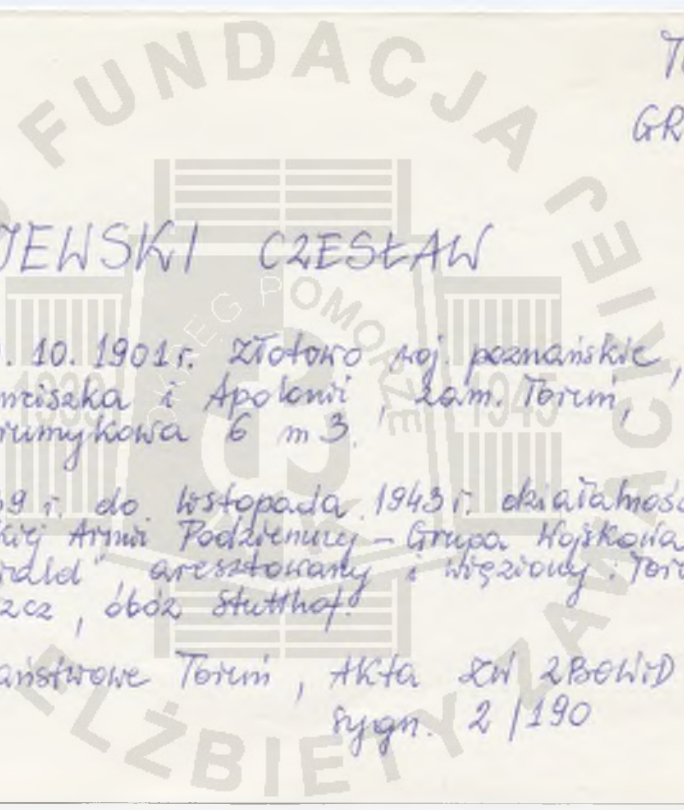 GR
JEWSKI CZESŁAW
10. 1901 r. Złotowo woj. poznańskie,
nciszka i Apolonii, zam. Toruń,
rumykowa 6 m 3.
39 r. do listopada 1943 r. działalność
kiej Armii Podziemnej – Grupa Wojskowa
wald" aresztowany i więziony: Toru
szcz, obóz Stutthof.
aństwowe Toruń, Akta ZW ZBOWiD
sygn. 2/190
FUNDACJA
ELŻBIETY ZAWACKIEJ
OKRĘG POMORZE
1939
1945